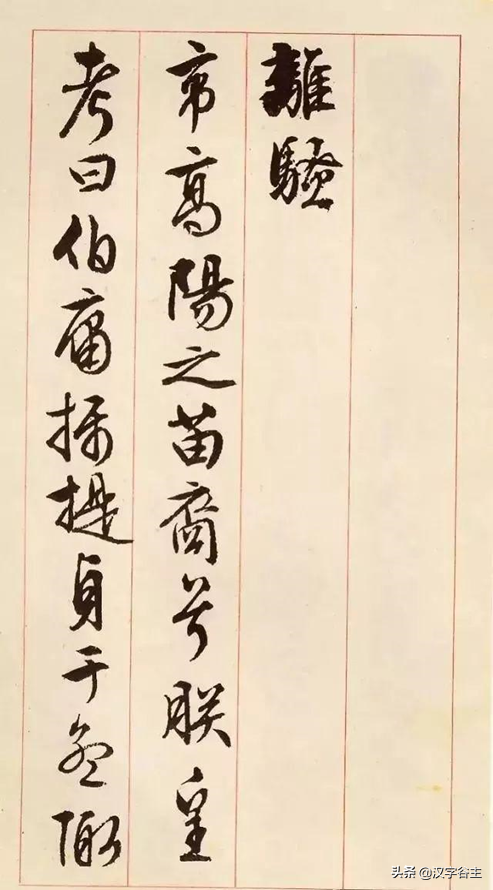 離騷
帝高陽之苗裔兮朕皇
考曰伯庸攝提貞于孟陬
头条 @汉字谷主